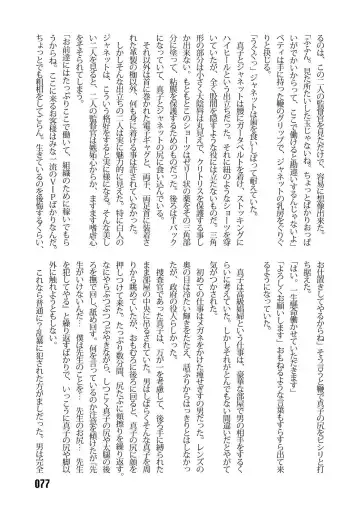 るのは、この二人の監督官を見ただけで、容易に想像出来た。
「ふぅん。見た所たいした玉じゃないね。ちょっとばかりおっぱ
いがでかいからって、ここで働けると勘違いすんじゃないよ」
ベティは手に持った鞭のグリップでジャネットの乳房をぐりぐ
りと抉る。
「うぅぅぐっ」ジャネットは歯を食いしばって耐えていた。
真子とジャネットは腰にガータベルトを着け、ストッキングに
ハイヒールという出立ちだった。それに紐のようなショーツを穿
いていたが、全く股間を隠すような役には立たないものだ。三角
形の部分は小さくて陰唇は丸見えで、クリトリスを保護する事し
か出来ない。もともとこのショーツはゼリー状の薬をその三角部
分に塗って、粘膜を保護するためのものだった。後ろはTバック
になっていて、真子とジャネットの尻に食い込んでいる。
それ以外は首に巻かれた電子ギャグと、両手、両足首に装着さ
れた革製の枷以外、何も身に着ける事は許されていなかった。
しかしそんな出立ちの二人は実に魅力的に見えた。特に白人の
ジャネットは、こういう格好をすると実に様になる。そんな美し
い二人を見ると、二人の監督官は嫉妬心からか、ますます嗜虐心
をそそられてしまう。
「お前達にはたっぷりここで働いて、組織のために稼いでもら
うからね。ここに来るお客様はみな一流のVIPばかりなんだ。
ちょっとでも粗相をしでかしたら、生きているのを後悔するくらい、
お仕置きしてやるからね」そう言うと鞭で真子の尻をビシリと打
ち据えた。
「はい。一生懸命働かせていただきます」
「よろしくお願いします」おもねるような言葉もすらすら出て来
るようになっていた。

真子は高級娼婦という仕事は、豪華な部屋で男の相手をするく
らいに考えていた。しかしそれがとんでもない間違いだとやがて
気がつかされた。
初めての仕事はメガネをかけた痩せぎすの男だった。レンズの
奥の目は冷たい輝きをたたえ、話ぶりからはっきりとはしなかっ
たが、政府の役人らしかった。
捜査官であった真子は、万が一を考慮して、後ろ手に縛られた
まま部屋の中央に吊るされていた。男はしばらくそんな真子を周
りから眺めていたが、おもむろに後ろに回ると、真子の尻に顔を
押しつけて来た。たっぷり数分間、尻たぶに頬擦りを繰り返す。
やがて男はぶつぶつつぶやきながら、しつこく真子の尻や太腿の後
ろを撫で回し、舐め回す。何を言っているのか注意を傾けたが「先
生がいけないんだ…僕は先生のことを…先生のお尻が…僕
を犯してやる」と繰り返すばかりで、いっこうに真子の尻や脚以
外に触れようともしない。
これなら普通に乱暴に犯された方がましだった。男は完全
077